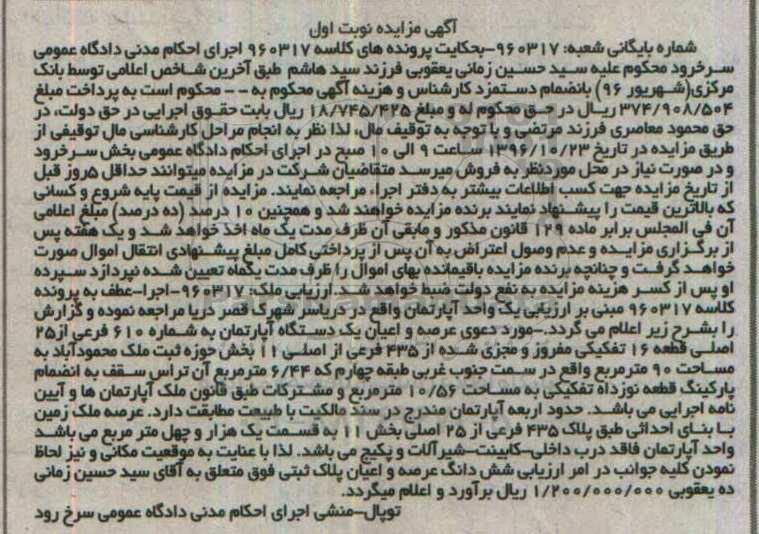 آگهی مزایده نوبت اول
شماره بایگانی شعبه: ۹۶۰۳۱۷-بحکایت پرونده های کلاسه ۹۶۰۳۱۷ اجرای احکام مدنی دادگاه عمومی
سرخرود محکوم علیه سید حسین زمانی یعقوبی فرزند سید هاشم طبق آخرین شاخص اعلامی توسط بانک
مرکزی(شهریور ۹۶) بانضمام دستمزد کارشناس و هزینه آگهی محکوم به -- محکوم است به پرداخت مبلغ
۳۷۴/۹۰۸/۵۰۴ ریال در حق محکوم له و مبلغ ۱۸/۷۴۵/۴۲۵ ریال بابت حقوق اجرایی در حق دولت، در
حق محمود معاصری فرزند مرتضی و با توجه به توقیف مال، لذا نظر به انجام مراحل کارشناسی مال توقیفی از
طریق مزایده در تاریخ ۱۳۹۶/۱۰/۲۳ ساعت ۹ الی ۱۰ صبح در اجرای احکام دادگاه عمومی بخش سرخرود
و در صورت نیاز در محل موردنظر به فروش میرسد متقاضیان شرکت در مزایده میتوانند حداقل ۵روز قبل
از تاریخ مزایده جهت کسب اطلاعات بیشتر به دفتر اجراء مراجعه نمایند. مزایده از قیمت پایه شروع و کسانی
که بالاترین قیمت را پیشنهاد نمایند برنده مزایده خواهند شد و همچنین ۱۰ درصد (ده درصد) مبلغ اعلامی
آن فی المجلس برابر ماده ۱۲۹ قانون مذکور و مابقی آن ظرف مدت یک ماه اخذ خواهد شد و یک هفته پس
از برگزاری مزایده و عدم وصول اعتراض به آن پس از پرداختی کامل مبلغ پیشنهادی انتقال اموال صورت
خواهد گرفت و چنانچه برنده مزایده باقیمانده بهای اموال را ظرف مدت یکماه تعیین شده نپردازد سپرده
او پس از کسر هزینه مزایده به نفع دولت ضبط خواهد شد. ارزیابی ملک: ۹۶۰۳۱۷-اجرا-عطف به پرونده
کلاسه ۹۶۰۳۱۷ مبنی بر ارزیابی یک واحد آپارتمان واقع در دریاسر شهرک قصر دریا مراجعه نموده و گزارش
را بشرح زیر اعلام می گردد.-مورد دعوی عرصه و اعیان یک دستگاه آپارتمان به شماره ۶۱۰ فرعی از۲۵
اصلی قطعه ۱۶ تفکیکی مفروز و مجزی شده از ۴۳۵ فرعی از اصلی ۱۱ بخش حوزه ثبت ملک محمودآباد به
مساحت ۹۰ مترمربع واقع در سمت جنوب غربی طبقه چهارم که ۶/۴۴ مترمربع آن تراس سقف به انضمام
پارکینگ قطعه نوزداه تفکیکی به مساحت ۱۰/۵۶ مترمربع و مشترکات طبق قانون ملک آپارتمان ها و آیین
نامه اجرایی می باشد. حدود اربعه آپارتمان مندرج در سند مالکیت با طبیعت مطابقت دارد. عرصه ملک زمین
با بنای احداثی طبق پلاک ۴۳۵ فرعی از ۲۵ اصلی بخش ۱۱ به قسمت یک هزار و چهل متر مربع می باشد
واحد آپارتمان فاقد درب داخلی-کابینت-شیرآلات و پکیج می باشد. لذا با عنایت به موقعیت مکانی و نیز لحاظ
نمودن کلیه جوانب در امر ارزیابی شش دانگ عرصه و اعیان پلاک ثبتی فوق متعلق به آقای سید حسین زمانی
ده یعقوبی ۱/۲۰۰/۰۰۰/۰۰۰ ریال برآورد و اعلام میگردد.
توپال-منشی اجرای احکام مدنی دادگاه عمومی سرخ رود